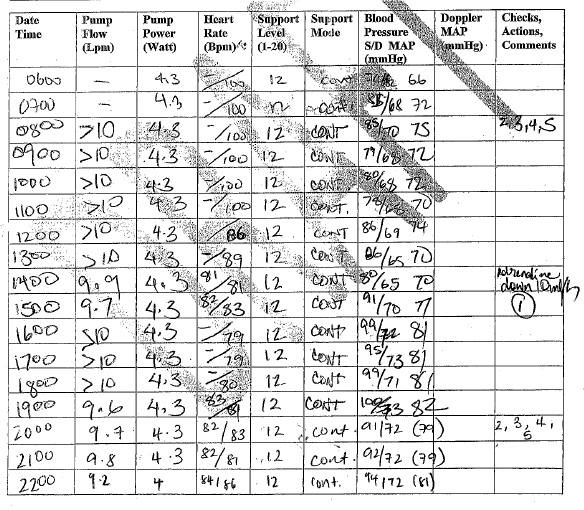 Date Time | Pump Flow (Lpm) | Pump Power (Watt) | Heart Rate (Bpm) | Support Level (1-20) | Support Mode | Blood Pressure S/D MAP (mmHg) | Doppler MAP (mmHg) | Checks, Actions, Comments
0600 — 4.3 -/100 12 cont 66
0700 — 4.3 -/100 12 cont /68 72
0800 >10 4.3 -/100 12 CONT 85/70 75 2,3,4,5
0900 >10 4.3 -/100 12 CONT 79/68 72
1000 >10 4.3 -/100 12 CONT 80/68 72
1100 >10 4.3 -/100 12 CONT. 70
1200 >10 4.3 -/86 12 CONT 86/69 74
1300 >10 4.3 -/89 12 CONT 86/65 70
1400 9.9 4.3 81/81 12 CONT 80/65 70 adrenaline down
1500 9.7 4.3 82/83 12 CONT 91/70 77 1
1600 4.3 -/79 12 CONT 99/72 81
1700 >10 4.3 -/79 12 CONT 95/73 81
1800 >10 4.3 -/80 12 CONT 99/71 81
1900 9.6 4.3 83/ 12 CONT /73 82
2000 9.7 4.3 82/83 12 cont. 91/72 (79) 2, 3, 4, 5
2100 9.8 4.3 82/81 12 cont. 92/72 (79)
2200 9.2 4 84/86 12 cont. 94/72 (81)